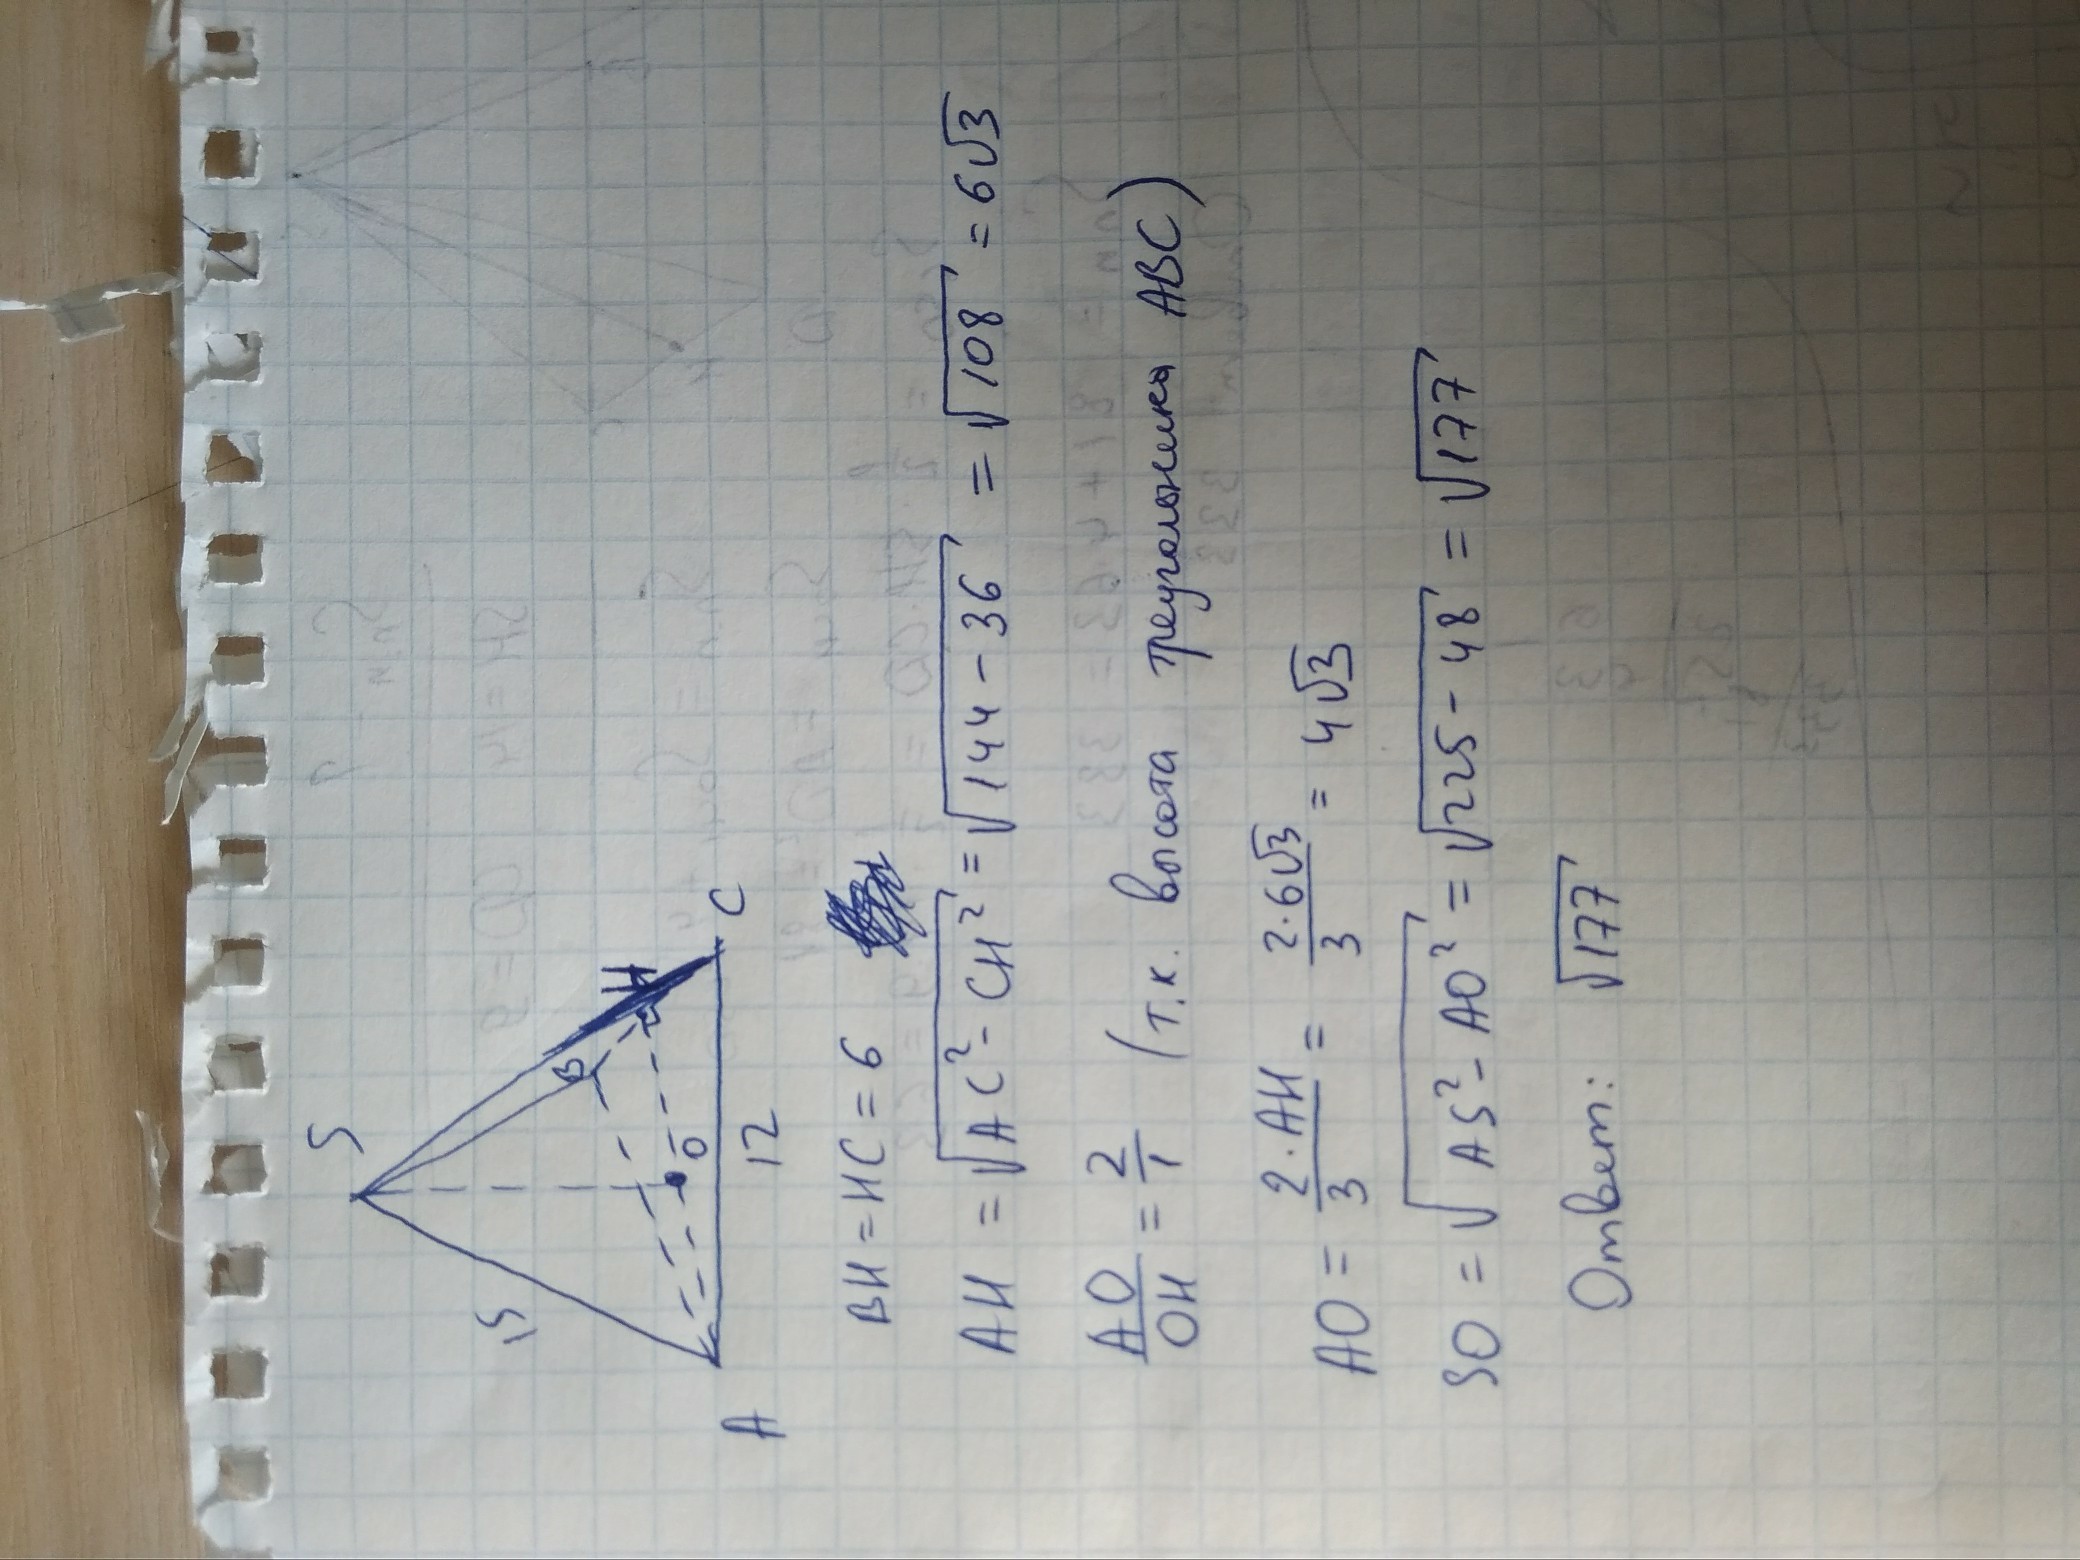 S
15
B
H
O
A
12
C
BH = HC = 6
AH = √AC² - CH² = √144 - 36 = √108 = 6√3
AO/OH = 2/1 (т.к. высота треугольника ABC)
AO = 2·AH/3 = 2·6√3/3 = 4√3
SO = √AS² - AO² = √225 - 48 = √177
Ответ: √177